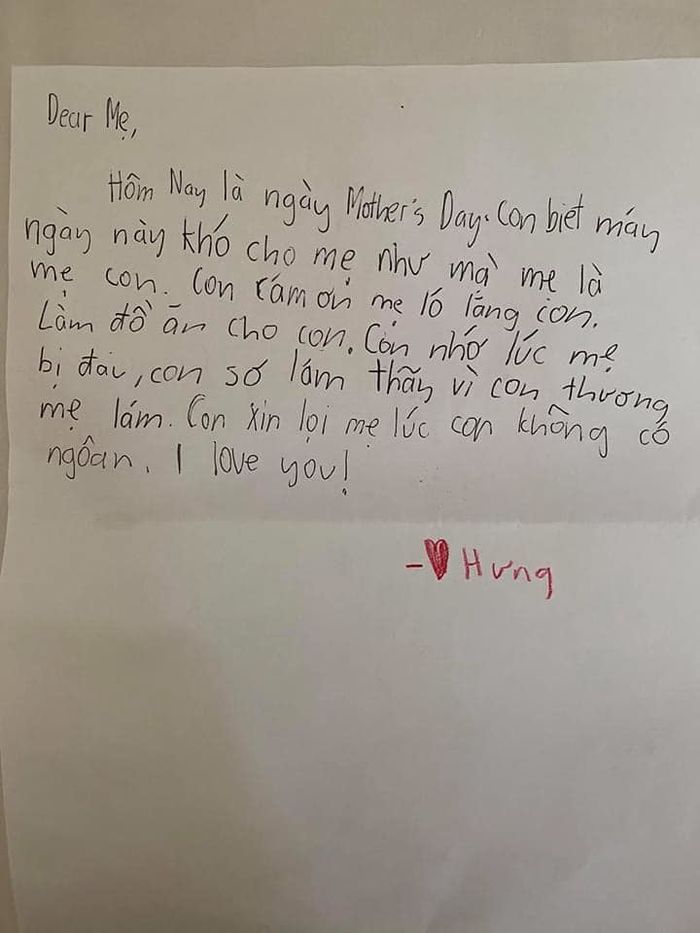 Dear Mẹ,
Hôm Nay là ngày Mother's Day. Con biết máy
ngày này khó cho mẹ như mà mẹ là
mẹ con. Con cám ơn mẹ ló lắng con.
Làm đồ ăn cho con. Con nhớ lúc mẹ
bị đau, con sớ lám thãy vì con thương
mẹ lám. Con xin lọi mẹ lúc con không có
ngôan. I love you!
-♥ Hưng